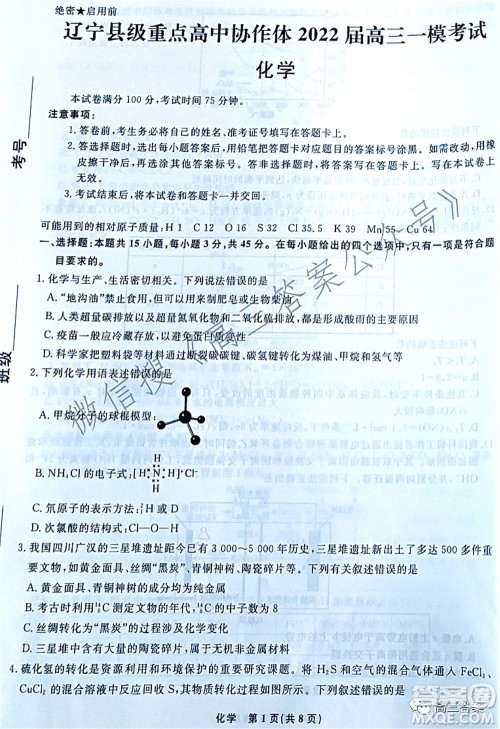 绝密★启用前
辽宁县级重点高中协作体 2022 届高三一模考试
化学
本试卷满分 100 分,考试时间 75 分钟。
注意事项:
1. 答卷前,考生务必将自己的姓名、准考证号填写在答题卡上。
2. 答选择题时,选出每小题答案后,用铅笔把答题卡对应题目的答案标号涂黑。如需改动,用橡
皮擦干净后,再选涂其他答案标号。答非选择题时,将答案写在答题卡上。写在本试卷上
无效。
3. 考试结束后,将本试卷和答题卡一并交回。
可能用到的相对原子质量:H 1 C 12 O 16 S 32 Cl 35.5 K 39 Mn 55 Cu 64
一、选择题:本题共 15 小题,每小题 3 分,共 45 分。在每小题给出的四个选项中,只有一项是符合题
目要求的。
1. 化学与生产、生活密切相关。下列说法错误的是
A. “地沟油”禁止食用,但可以用来制肥皂或生物柴油
B. 人类超量排放以及超量氮氧化物和二氧化硫排放,都是形成酸雨的主要原因
C. 疫苗一般应冷藏存放,以避免蛋白质变性
D. 科学家已成功将塑料通过断裂碳碳键、碳氢键转化为煤油、甲烷和氢气等
2. 下列化学用语表述错误的是
A. 甲烷分子的球棍模型:
B. NH₄Cl 的电子式:[H:N:H]⁺Cl⁻
H
H
C. 氘原子的表示方法:²₁H 或 D
D. 次氯酸的结构式:Cl—O—H
3. 我国四川广汉的三星堆遗址距今已有 3 000~5 000 年历史,三星堆遗址新出土了多达 500 多件重
要文物,如黄金面具、青铜神树、丝绸“黑炭”、陶瓷碎片等。下列有关叙述错误的是
A. 黄金面具、青铜神树的成分均为纯金属
B. 考古时利用¹⁴₆C 测定文物的年代,¹⁴₆C 的中子数为 8
C. 丝绸转化为“黑炭”的过程中涉及化学变化
D. 三星堆中含有大量的陶瓷碎片,陶瓷属于无机非金属材料
4. 硫化氢的转化是资源利用和环境保护的重要研究课题。将 H₂S 和空气的混合气体通入 FeCl₃、
CuCl₂ 的混合溶液中反应回收 S,其转化过程如图所示。下列叙述错误的是
化学 第 1 页(共 8 页)
考号
班级
微信搜《高三答案公众号》
高三答案
答案圈